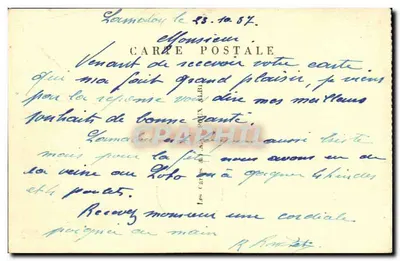 Lamalou le 23.10.57
Monsieur
CARTE POSTALE
Venant de recevoir votre carte
qui m'a fait grand plaisir, je viens
par la réponse vous dire mes meilleurs
souhaits de bonne santé.
Lamalou est aussi triste
mais pour la fête nous avons eu de
la veine au Loto on a gagner dindes
et poulets.
Recevez monsieur une cordiale
poignée de main
R.
CPAPHIL